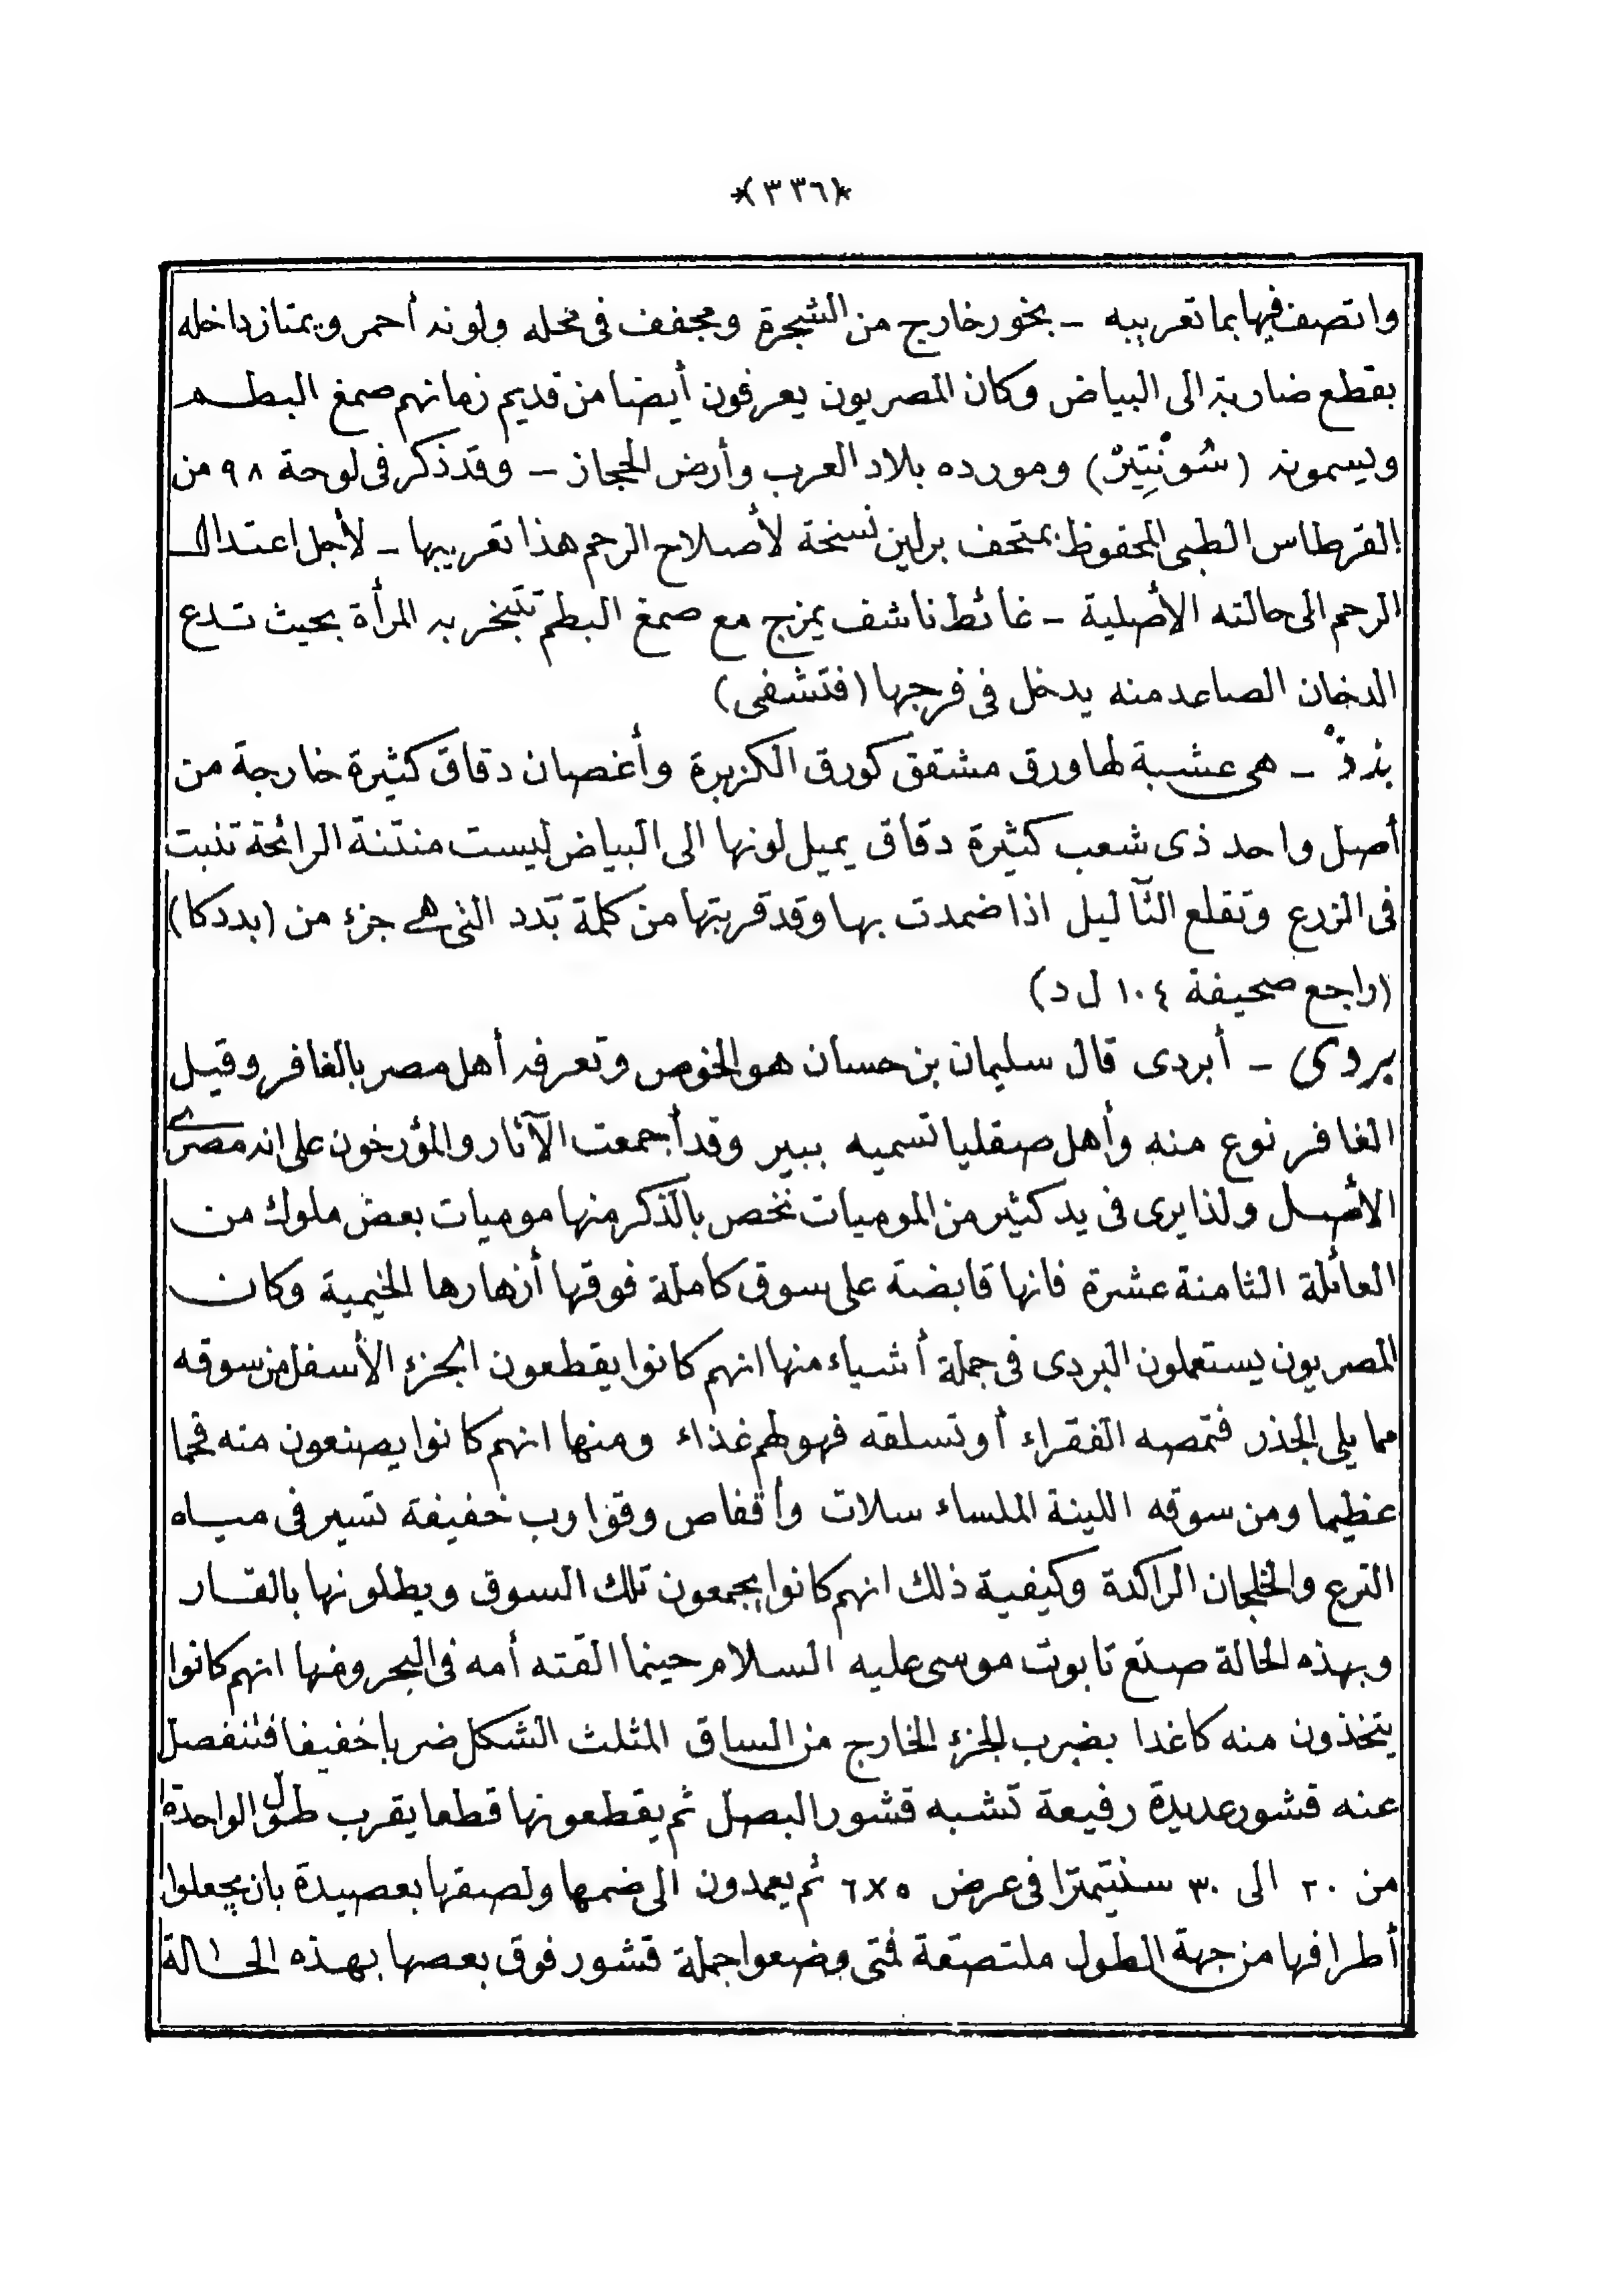 *(٣٣٦)*
واتصف فيها بما تعريبه - بخور خارج من الشجرة ومجفف فى محله ولونه أحمر ويمتاز داخله
بقطع ضاربة الى البياض وكان المصريون يعرفون أيضا من قديم زمانهم صمغ البطم
ويسمونه (سُونْتِيْرْ) ومورده بلاد العرب وأرض الحجاز - وقد ذكر فى لوحة ٩٨ من
القرطاس الطبى المحفوظ بمتحف برلين نسخة لأصلاح الرحم هذا تعريبها - لأجل اعتدال
الرحم الى حالته الأصلية - غائط ناشف يمزج مع صمغ البطم تتبخر به المرأة بحيث تدع
الدخان الصاعد منه يدخل فى فرجها (فتشفى)
بَذذْ - هى عشبة لها ورق مشقق كورق الكزبرة وأغصان دقاق كثيرة خارجة من
أصل واحد ذى شعب كثيرة دقاق يميل لونها الى البياض ليست منتنة الرائحة تنبت
فى الزرع وتقلع الثآليل اذا ضمدت بها وقد قربتها من كلمة بَدد التى هى جزء من (بددكا)
(راجع صحيفة ١٠٤ ل د)
بردى - أبردى قال سليمان بن حسان هو الخوص وتعرفه أهل مصر بالغافر وقيل
الغافر نوع منه وأهل صقليا تسميه ببير وقد أجمعت الآثار والمؤرخون على انه مصرى
الأصل ولذا يرى فى يد كثير من الموميات نخص بالذكر منها موميات بعض ملوك من
العائلة الثامنة عشرة فانها قابضة على سوق كاملة فوقها أزهارها الخيمية وكان
المصريون يستعملون البردى فى جملة أشياء منها انهم كانوا يقطعون الجزء الأسفل من سوقه
مما يلى الجذر فتمصه الفقراء أو تسلقه فهو لهم غذاء ومنها انهم كانوا يصنعون منه فحما
عظيما ومن سوقه اللينة الملساء سلات وأقفاص وقوارب خفيفة تسير فى مياه
الترع والخلجان الراكدة وكيفية ذلك انهم كانوا يجمعون تلك السوق ويطلونها بالقار
وبهذه الحالة صنع تابوت موسى عليه السلام حينما القته أمه فى البحر ومنها انهم كانوا
يتخذون منه كاغدا بضرب الجزء الخارج من الساق المثلث الشكل ضربا خفيفا فتنفصل
عنه قشور عديدة رفيعة تشبه قشور البصل ثم يقطعونها قطعا يقرب طول الواحدة
من ٢٠ الى ٣٠ سنتيمترا فى عرض ٥ × ٦ ثم يعمدون الى ضمها ولصقها بعصيدة بان يجعلوا
أطرافها من جهة الطول ملتصقة فمتى وضعوا جملة قشور فوق بعصها بهذه الحالة